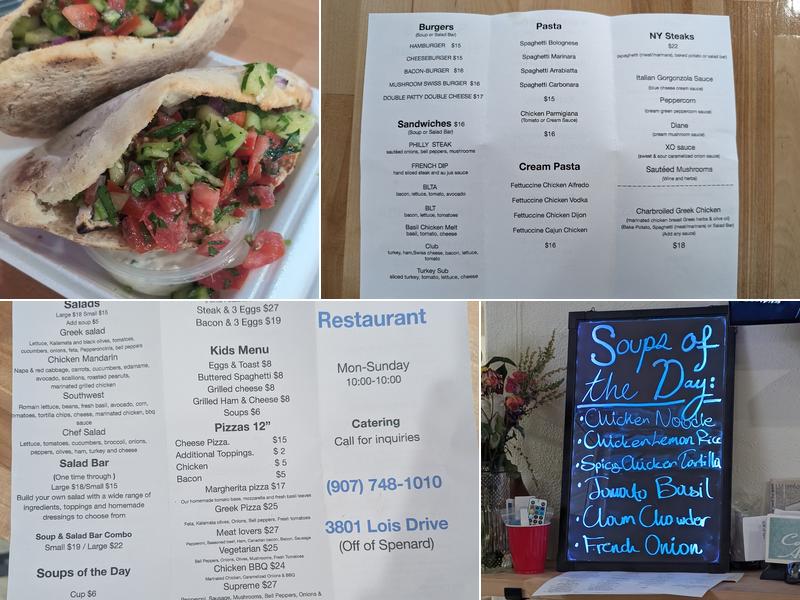 Burgers
(Soup or Salad Bar)
HAMBURGER $15
CHEESEBURGER $15
BACON-BURGER $16
MUSHROOM SWISS BURGER $16
DOUBLE PATTY DOUBLE CHEESE $17
Sandwiches $16
(Soup or Salad Bar)
PHILLY STEAK
sautéed onions, bell peppers, mushrooms
FRENCH DIP
hand sliced steak and au jus sauce
BLTA
bacon, lettuce, tomato, avocado
BLT
bacon, lettuce, tomatoes
Basil Chicken Melt
basil, tomato, cheese
Club
turkey, ham,Swiss cheese, bacon, lettuce,
tomato
Turkey Sub
sliced turkey, tomato, lettuce, cheese
Pasta
Spaghetti Bolognese
Spaghetti Marinara
Spaghetti Arrabiatta
Spaghetti Carbonara
$15
Chicken Parmigiana
(Tomato or Cream Sauce)
$16
Cream Pasta
Fettuccine Chicken Alfredo
Fettuccine Chicken Vodka
Fettuccine Chicken Dijon
Fettuccine Cajun Chicken
$16
NY Steaks
$22
(spaghetti (meat/marinara), baked potato or salad bar)
Italian Gorgonzola Sauce
(blue cheese cream sauce)
Peppercorn
(cream green peppercorn sauce)
Diane
(cream mushroom sauce)
XO sauce
(sweet & sour caramelized onion sauce)
Sautéed Mushrooms
(Wine and herbs)
Charbroiled Greek Chicken
(marinated chicken breast Greek herbs & olive oil)
(Bake Potato, Spaghetti (meat/marinara) or Salad Bar)
(Add any sauce)
$18
Salads
Large $18 Small $15
Add soup $5
Greek salad
Lettuce, Kalamata and black olives, tomatoes,
cucumbers, onions, feta, Pepperoncinis, bell peppers
Chicken Mandarin
Napa & red cabbage, carrots, cucumbers, edamame,
avocado, scallions, roasted peanuts,
marinated grilled chicken
Southwest
Romain lettuce, beans, fresh basil, avocado, corn,
tomatoes, tortilla chips, cheese, marinated chicken, bbq
sauce
Chef Salad
Lettuce, tomatoes, cucumbers, broccoli, onions,
peppers, olives, ham, turkey and cheese
Salad Bar
(One time through )
Large $18/Small $15
Build your own salad with a wide range of
ingredients, toppings and homemade
dressings to choose from
Soup & Salad Bar Combo
Small $19 / Large $22
Soups of the Day
Cup $6
Steak & 3 Eggs $27
Bacon & 3 Eggs $19
Kids Menu
Eggs & Toast $8
Buttered Spaghetti $8
Grilled cheese $8
Grilled Ham & Cheese $8
Soups $6
Pizzas 12”
Cheese Pizza. $15
Additional Toppings. $ 2
Chicken $ 5
Bacon $5
Margherita pizza $17
Our homemade tomato base, mozzarella and fresh basil leaves
Greek Pizza $25
Feta, Kalamata olives, Onions, Bell peppers, Fresh tomatoes
Meat lovers $27
Pepperoni, Seasoned beef, Ham, Canadian bacon, Bacon, Sausage
Vegetarian $25
Bell Peppers, Onions, Olives, Mushrooms, Fresh Tomatoes
Chicken BBQ $24
Marinated Chicken, Caramelized Onions & BBQ
Supreme $27
Pepperoni, Sausage, Mushrooms, Bell Peppers, Onions &
Restaurant
Mon-Sunday
10:00-10:00
Catering
Call for inquiries
(907) 748-1010
3801 Lois Drive
(Off of Spenard)
Soups of
the Day:
• Chicken Noodle
• Chicken Lemon Rice
• Spicy Chicken Tortilla
• Tomato Basil
• Clam Chowder
• French Onion